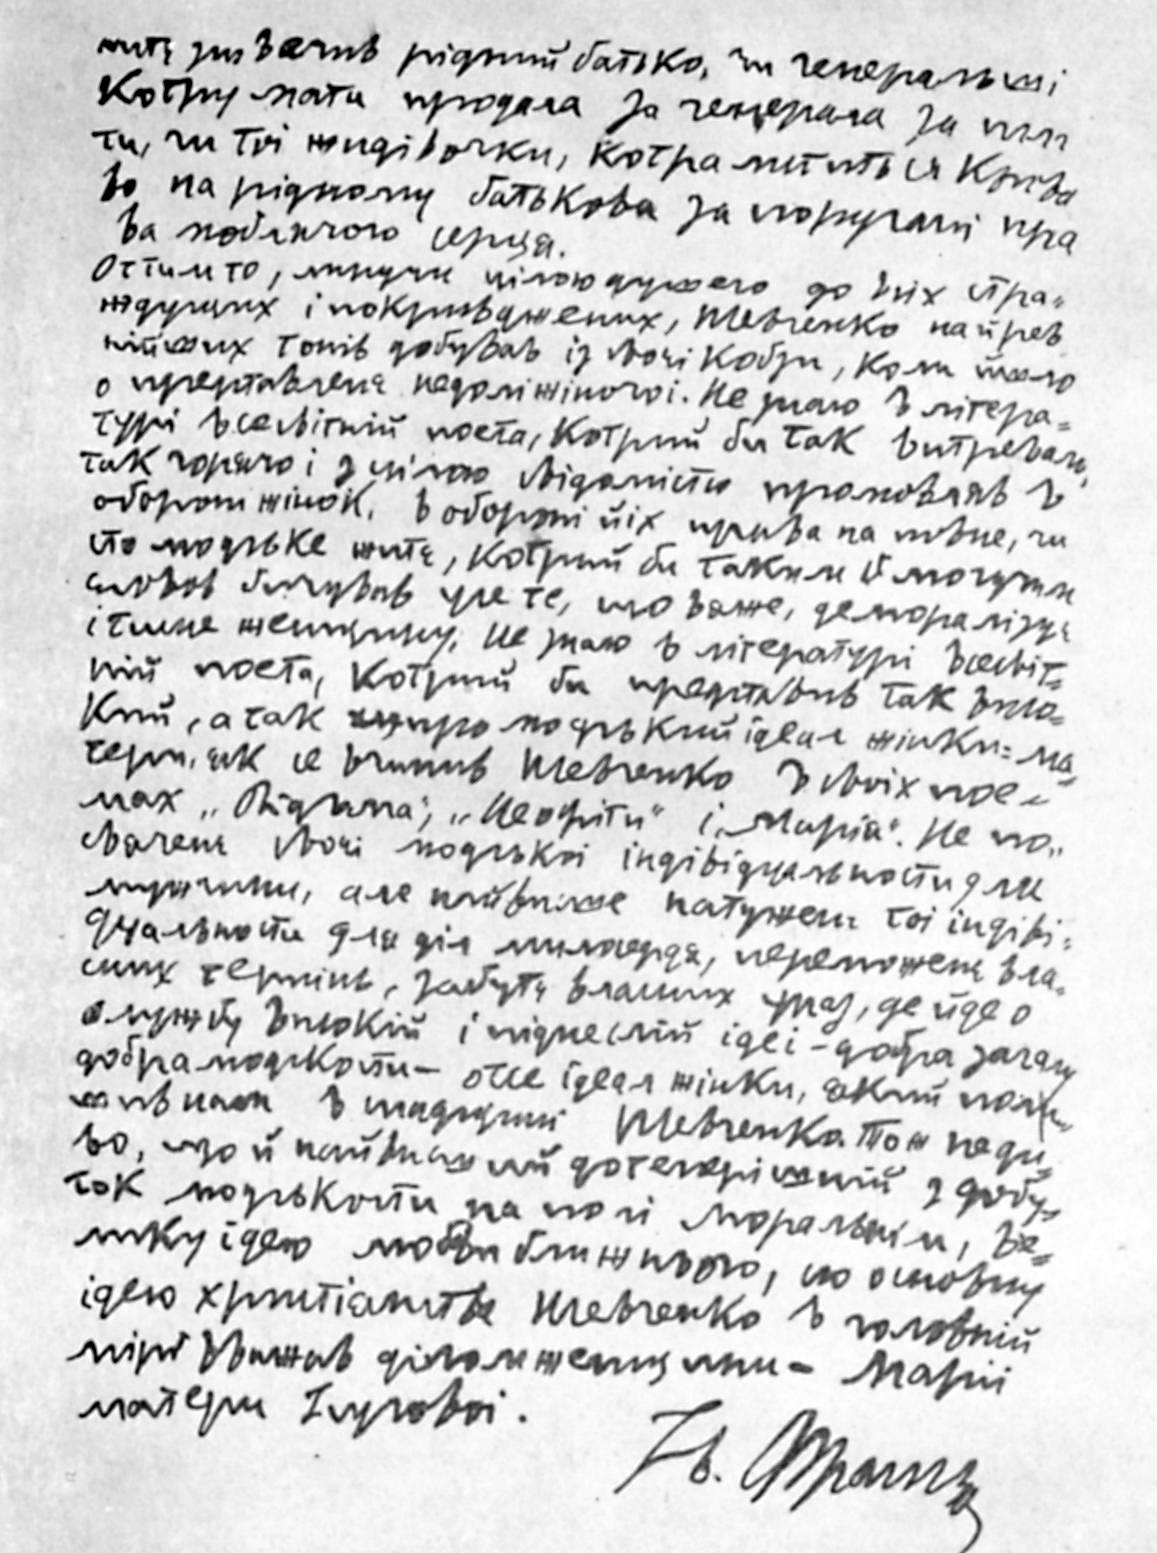 житє знівечив рідний батько, чи генеральші
Котру мати продала за генерала за пала
ти, чи тої жидівочки, Котра мститься Крова
во на рідному батькови за поруганє пра
ва люблячого серця.
Оттим то, линучи цілою душею до всіх стра=
ждущих і покривджених, Шевченко найрев
нійших тонів добував із своєї Кобзи, Коли йшло
о представленє недолі жіночої. Не знаю в літера=
турі всесвітній поета, Котрий би так витревало,
так горячо і з цілою свідомістю промовляв в
обороні жінок, в обороні їіх права на повне, чи
сто людське житє, Котрий би таким могучим
словом бичував усе те, що вяже, деморалізує
і тисне женщину. Не знаю в літературі всесвіт=
ній поета, Котрий би представив так висо=
Кий, а так щиро людський ідеал жінки=ма
тери, як се вчинив Шевченко в своїх пое=
мах „Відьма", „Неофіти" і „Марія". Не по=
сваченє своєї людської індівідуальности для
мужчини, але найвисше натуженє тої індіві=
дуальности для діл милосердя, переможенє вла=
сних терпінь, забутє власних ураз, де йде о
службу високій і піднеслій ідеї – добра загалу
добра людскости – отсе ідеал жінки, який поли=
шив нам в спадщині Шевченко. Тож не ди=
во, що й найвисший дотеперішний здобу=
ток людськости на поли моральнім, ве=
лику ідею любви ближнього, сю основну
ідею християнства Шевченко в головній
мірі вважав ділом женщини – Марії
матери Ісусової.
Ів. Франко